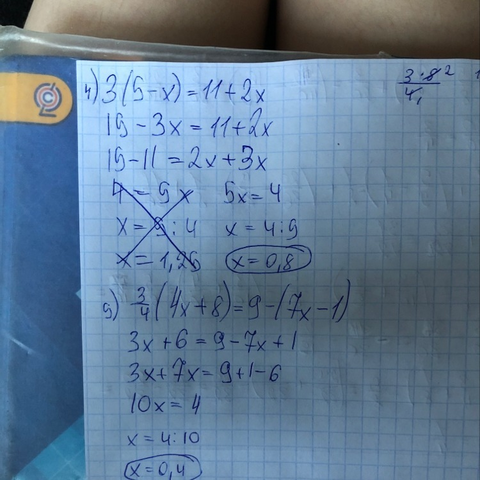 4) 3(5-x)=11+2x
15-3x=11+2x
15-11=2x+3x
4=5x 5x=4
x=5:4 x=4:5
x=1,25 x=0,8
5) 3/4(4x+8)=9-(7x-1)
3x+6=9-7x+1
3x+7x=9+1-6
10x=4
x=4:10
x=0,4
3·8 2
4,